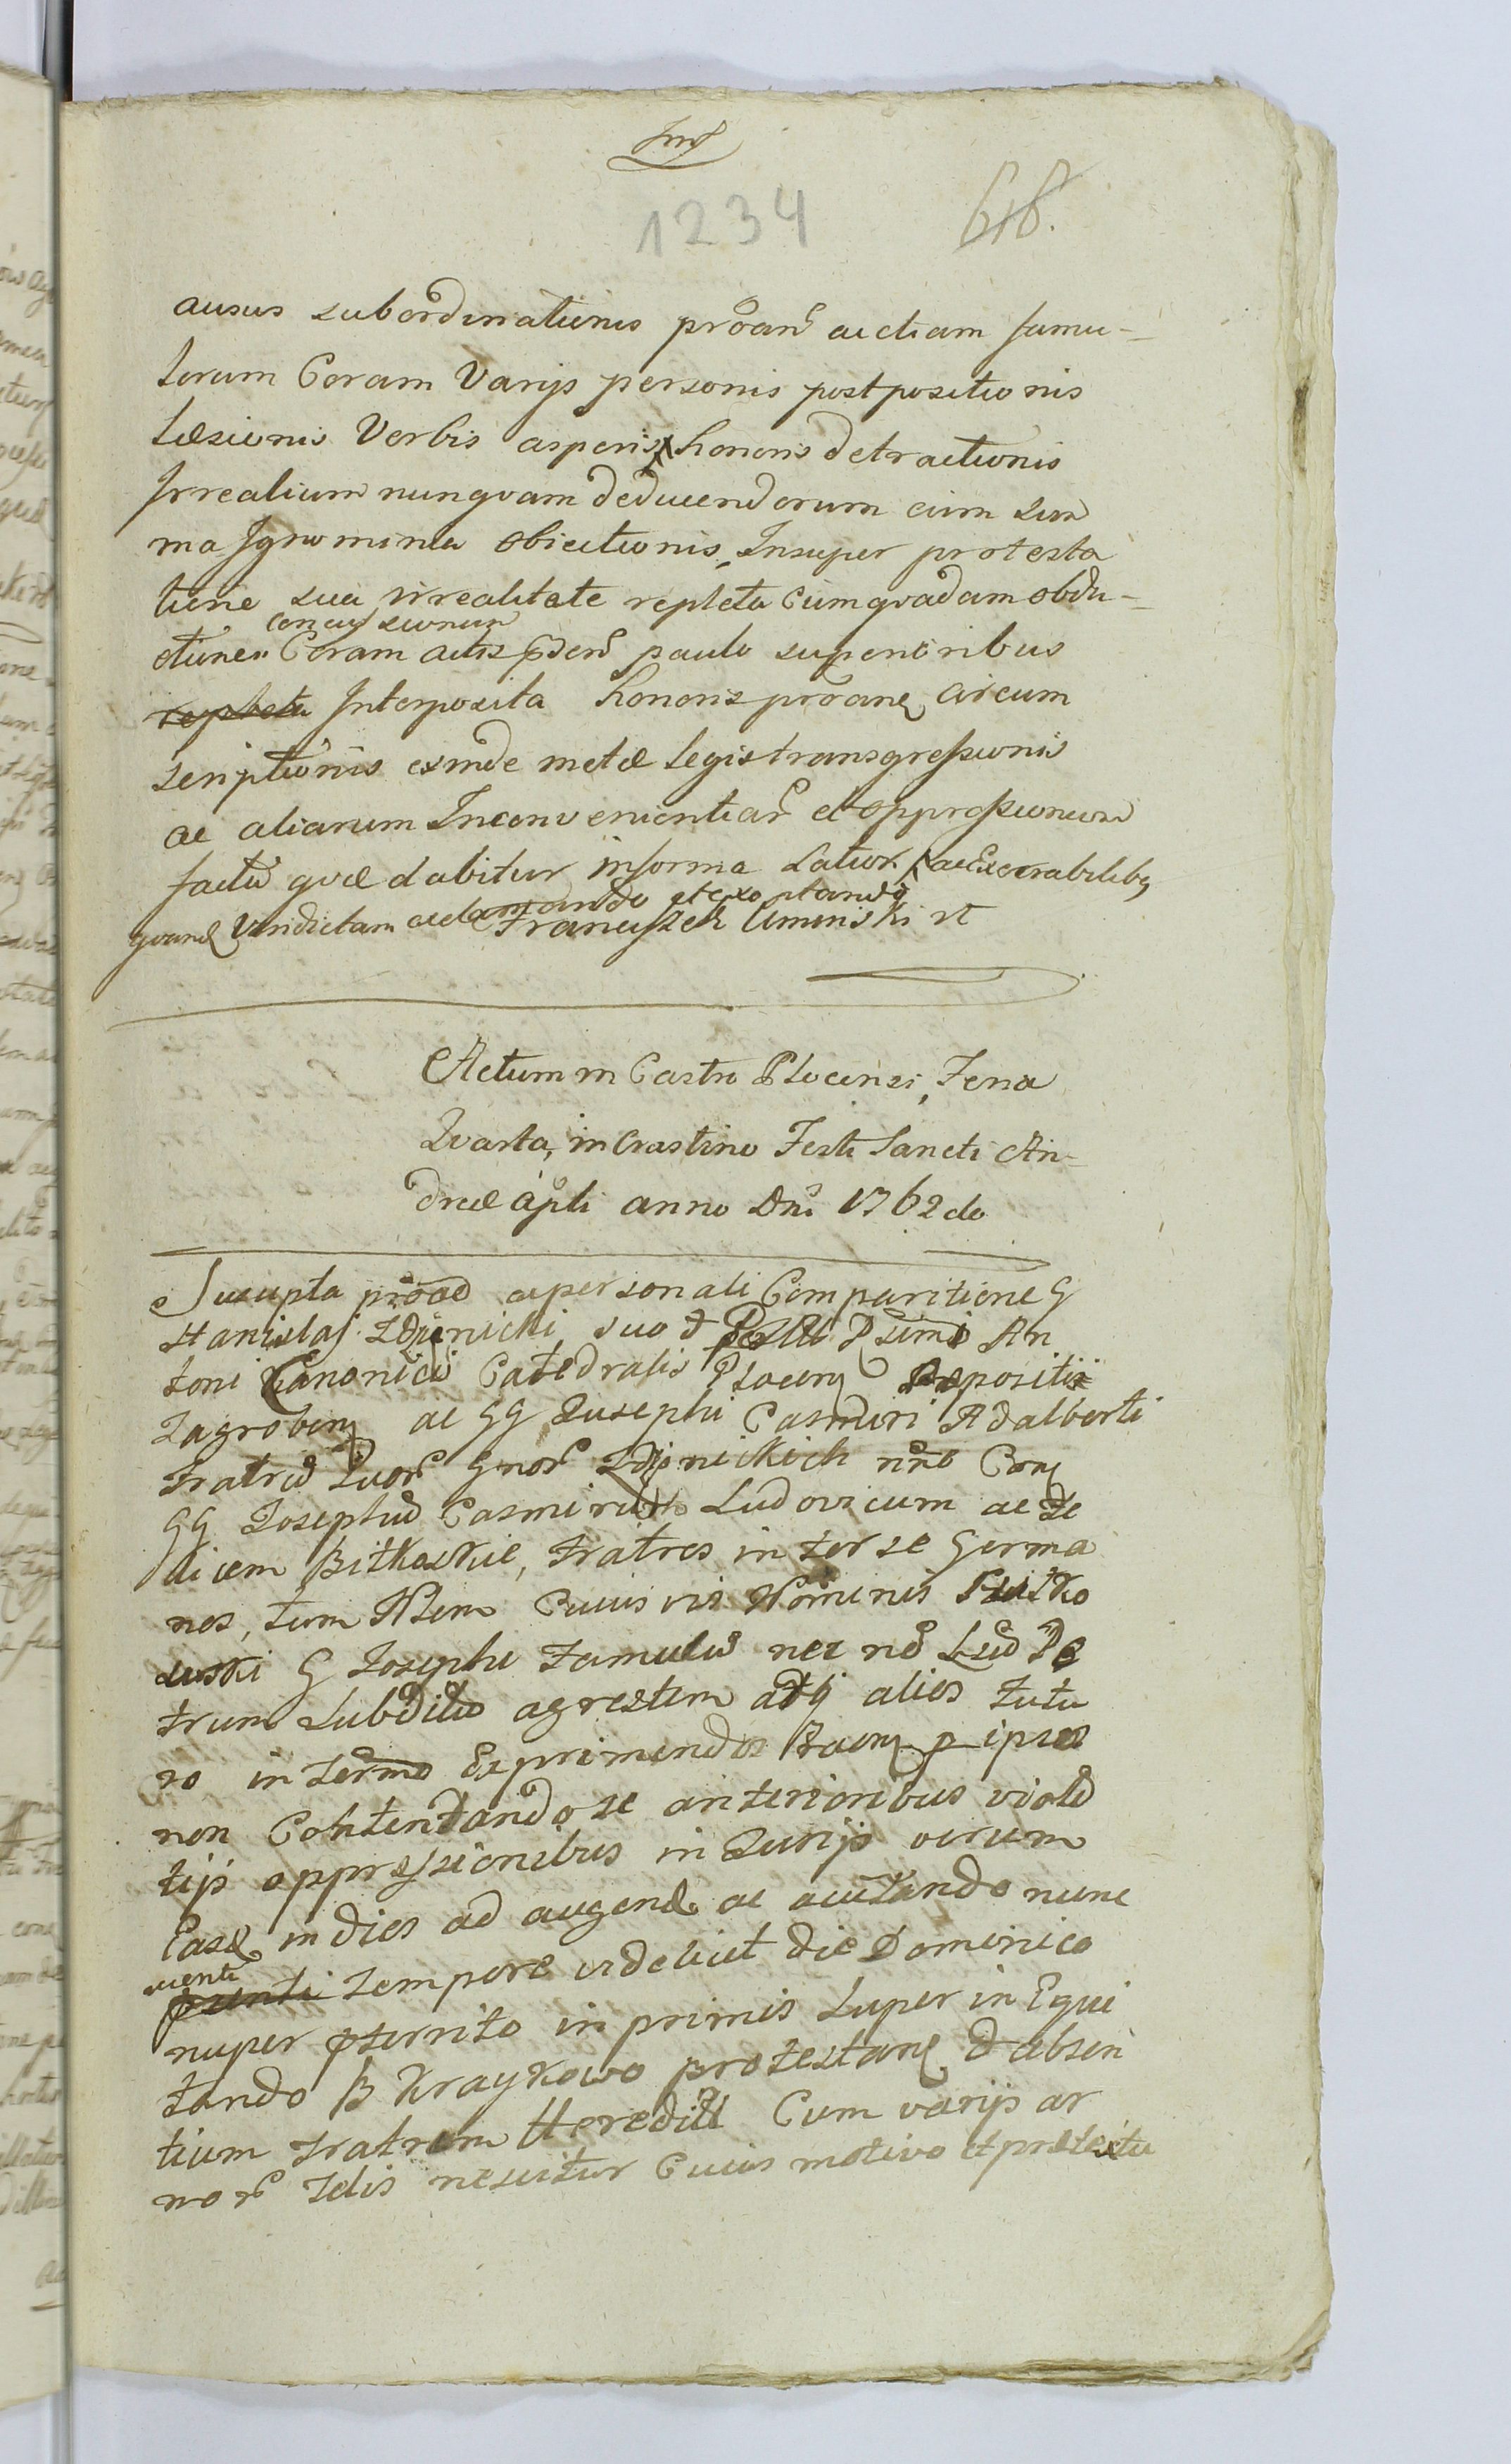 1234 618.
ausus subordinationis proan ac etiam famu-
lorum Coram Varijs personis postpositionis
læsionis Verbis asperis honoris detractionis
Irrealium nunqvam deducendorum cum sum
ma Ignominia obiectionis, Insuper protesta
tione sua irrealitate repleta cum qvadam obdu-
ctione Coram actis pden paulo superioribus
repleta Interposita honoris proanę circum
scriptionis exinde metæ legis transgressionis
ac aliarum Inconvenientiar et oppressionum
factů qvæ dabitur informa Latiori ac Execrabilibq
Vindictam acclamando et exoptando
Franciszek Uminski
Actum in Castro Plocensi, Feria
Qvarta, in Crastino Festi Sancti An-
dreæ apli anno Dni 1762do
Suscepta proãõe a personali Comparitione G
Stanislaj suo et An
toni Canonici Catedralis Plocen Præpositi
Zagroben ac GG Iosephi Casmiri Adalberti
Fratrů Gnor nne Con
GG Iosephů Casmirům Ludovicum ac Fe
licem Bitkoskie, Fratres inter se Germa
nos, tum Nlem Cuiusvis Nominis
G Iosephi Famulů nec nõ Lsů Pe
trum Subditů agrestem adq alios Futu
ro in Termo Exprimendos ipsos
non Contentando se anterioribus viole
tijs oppressionibus in Iurijs verum
Eas in dies ad augend ac acutando nunc
tempore videlicet die Dominico
nuper pterito in primis Super in Equi
tando B Kraykowo protestanę et absen
tium Fratrem Cum varijs ar
mor Telis nescitur Cuius motivo et prætextu